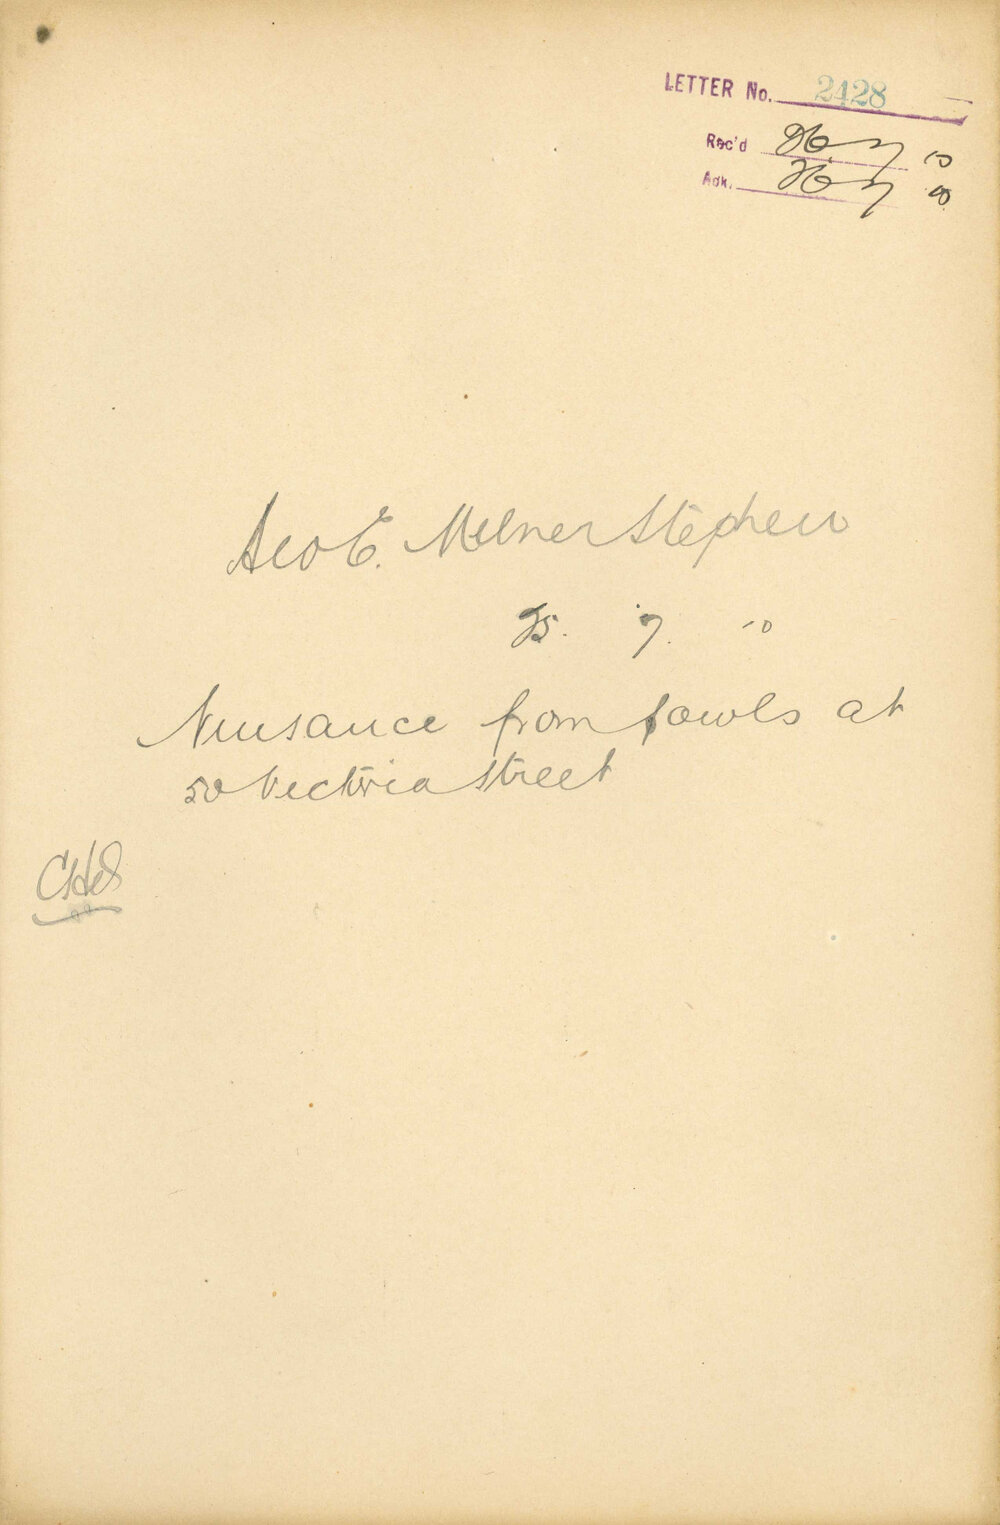 LETTER No. 2428
Rec'd 26 7 10
Ack. 26 7 10
Geo E. Milner Stephen
25. 7. 10
Nuisance from fowls at
50 Victoria Street